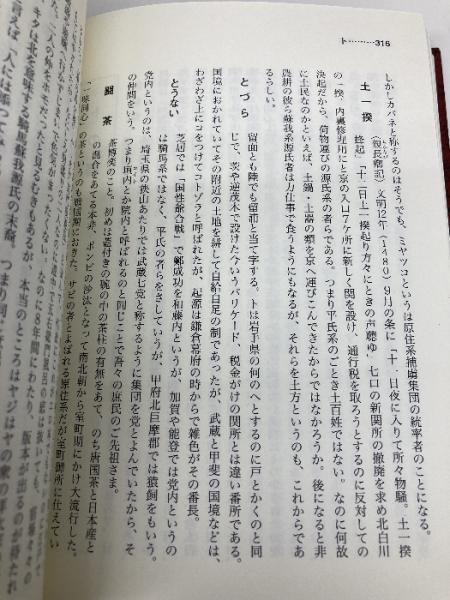 ト………316
しかしカバネと称するのはそうでも、ミヤツコというは原住系捕虜集団の統率者のことになる。
土一揆
(親長卿記)文明12年(1480)9月の条に「十一日夜に入りて所々物騒。土一揆
蜂起」「十二日土一揆起り方々にときの声聴ゆ、七口の新関所の撤廃を求め北白川
の一揆、内裏修理用にと京の入口7ケ所に新しく関を設け、通行税を取ろうとするのに反対しての
決起だから、荷物運びの源氏系の者らである。つまり平氏系のごとき土百姓ではない。なのに何故
に土民なのかといえば、土鍋・土器の類を京へ運びこんできたからではなかろうか。後になると非
農耕の彼ら蘇我系源氏者は力仕事で食うようにもなるが、それらを土方というのも、これからであ
るらしい。
とづら
留面とも陸でも留浦と当て字する。トは岩手県の何のへとするのに戸とかくのと同
じで、茨や逆茂木で設けた今いうバリケード、税金がけの関所とは違い番所である。
国境におかれていてその附近の土地を耕して自給自足の制であったが、武蔵と甲斐の国境などは、
わざわざ上にコをつけてコトゾラと呼ばれたが、起源は鎌倉幕府の時からで雑色がその番長。
とうない
芝居では「国性爺合戦」で鄭成功を和藤内というが、加賀や能登では党内というの
は騎馬系ではなく、平氏の者らをさしていうが、甲府北巨摩郡では猿飼をもいう。
党内というのは、埼玉県の狭山あたりでは武蔵七党と称するように集団を党とよんでいたから、そ
の仲間をいう。つまり垣内とか院内と呼ばれるのと同じことで吾々の庶民のご先祖さま。
闘茶
茶博奕のこと。初めは蓋付きの碗の中の茶柱の有無をあて、のち唐国茶と日本産と
の混合をあてる本非、ボンビの沙汰となって南北朝から室町期にかけ大流行した。
「一味同心」の茶というのも戦国期におきた。サビの者とよばれる原住系だが室町御所に仕えてい